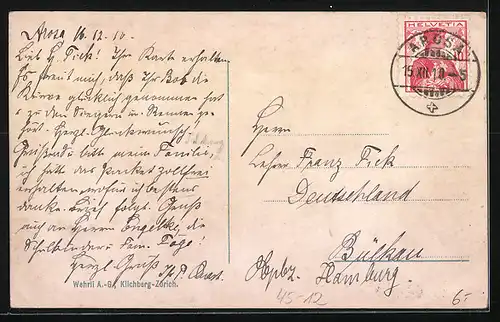 Arosa 16.12.10.
Lieb. H. Fick! Ihr Karte erhalten.
Es freut mich, daß Ihr Bob die
Kurve glücklich genommen hat
u. zu den Siegern im Rennen ge-
hört. Herzl. Glückwunsch!
Grüßend bitte meine Familie,
ich hätte das Packet zollfrei
erhalten wofür ich bestens
danke. Brief folgt. Gruß
auch an Herrn Engelke, die
Schulkinder u. Fam.
Herzl. Gruß
Wehrli A.-G., Kilchberg-Zürich.
HELVETIA
10
AROSA
15.XII.10-5
Herrn
Lehrer Franz Fick
Deutschland
Bülkau
Hamburg.
45-12
6.-